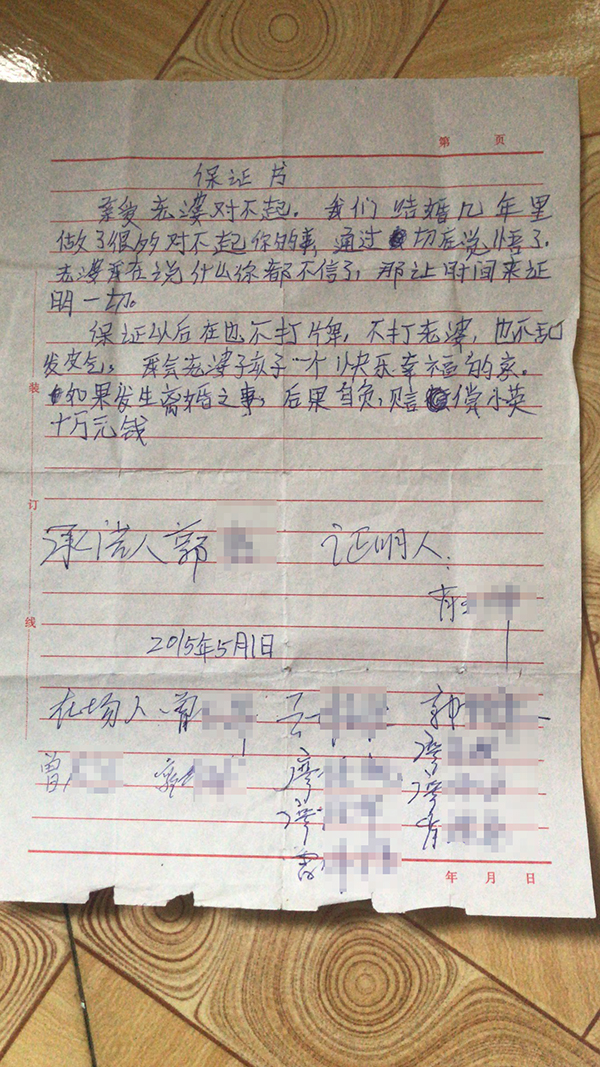 第 页
保证书
亲爱老婆对不起。我们结婚几年里
做了很多对不起你的事 通过 切在觉悟了
老婆我在说什么你都不信了，那让时间来证
明一切。
保证以后在也不打牌，不打老婆，也不乱
发皮气。还给老婆子孩子一个快乐幸福的家。
如果发生离婚之事，后果自负，赔偿小英
十万元钱
装
订
线
承诺人郭 证明人：
2015年5月1日
在场人 曾 郭
曾 廖 廖
廖
年 月 日